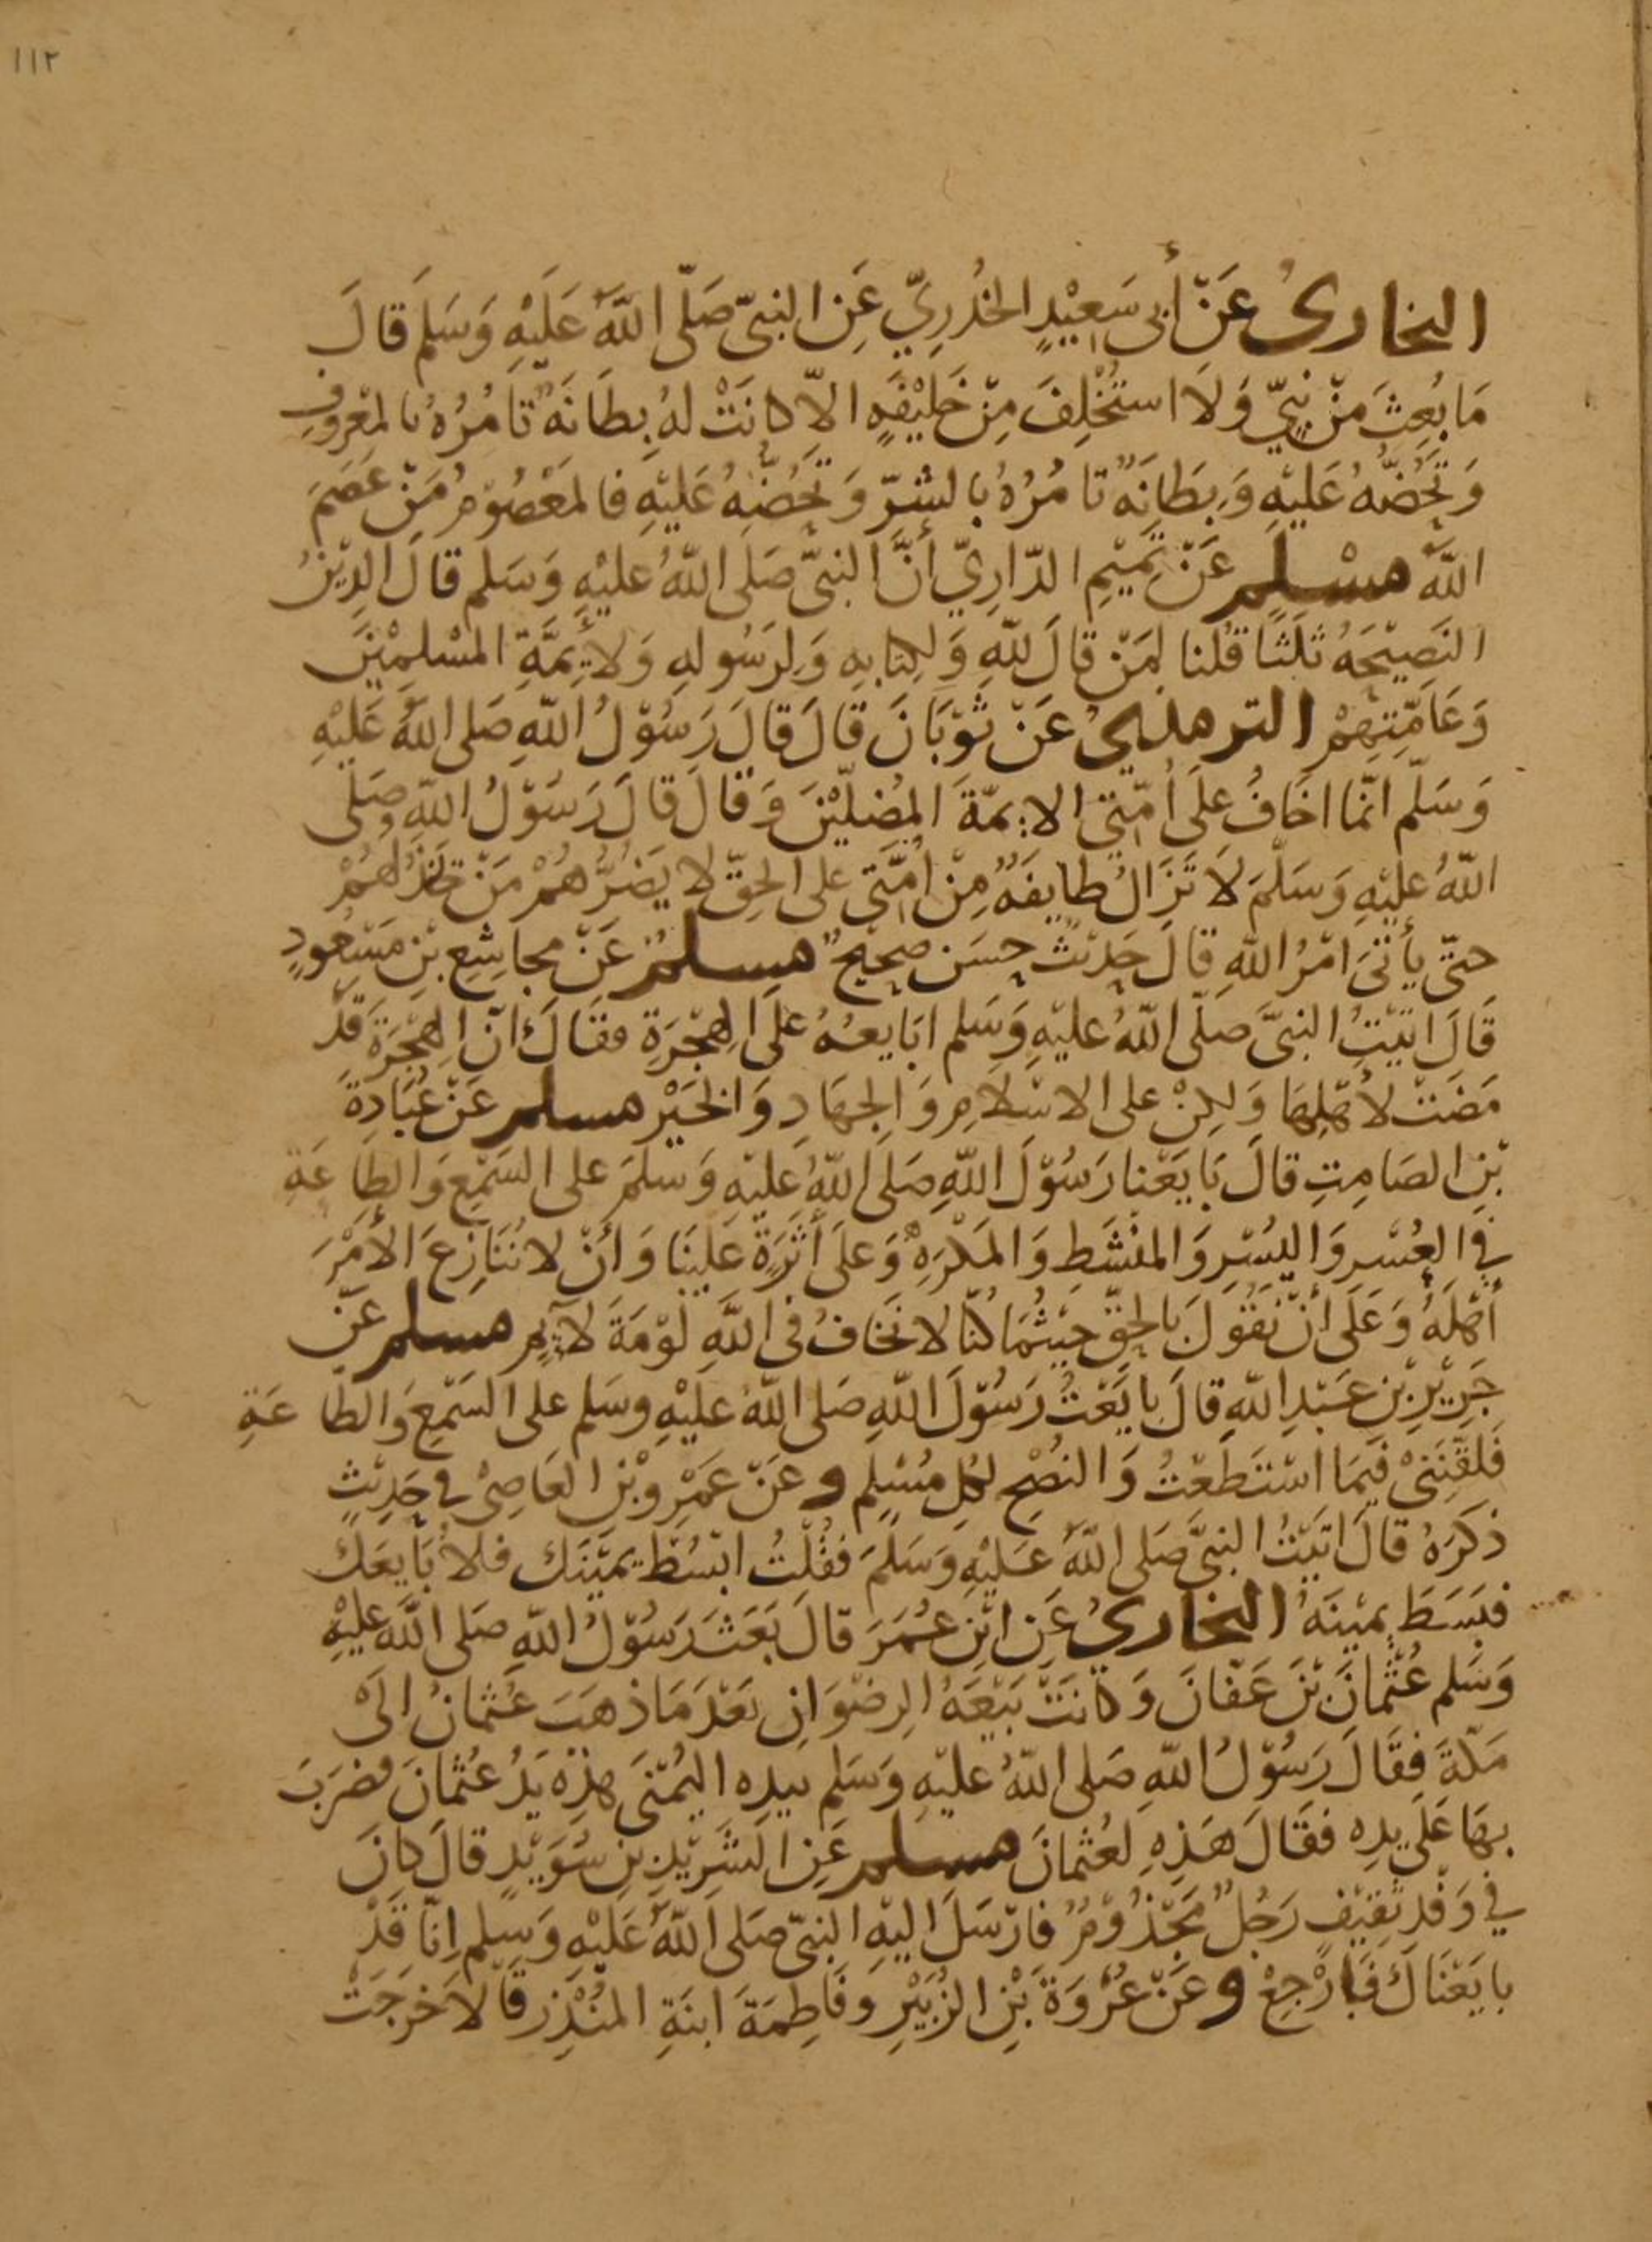 ١١٢
البخاريُ عَنْ أبى سَعِيْدٍ الخُدْرِيّ عَنِ النبىّ صَلّى اللّهُ عَلَيْهِ وَسَلَّمَ قَالَ
مَا بُعِثَ مِنْ نبِيّ وَلَا استُخْلِفَ مِنْ خَلِيْفَةٍ الاّ كانَتْ لهُ بِطَانَةٌ تَامُرُهُ بالمعْرُوفِ
وَتَحُضّهُ عَليْهِ وَبِطَانَةٌ تامُرُهُ بالشرّ وَتَحُضّهُ عَليْهِ فالمَعْصُوْمُ مَنْ عَصَمَ
اللّهُ مسْلمٌ عَنْ تَمِيْمِ الدّارِيّ أنَّ النبىَّ صَلَى اللّهُ عليْهِ وَسَلم قالَ الدِيْنُ
النَصِيْحَةُ ثَلَثًا قُلنا لِمَنْ قالَ للّهِ وَلِكتابِهِ وَلِرَسُولهِ وَلأئِمَّةِ المسْلمِيْنَ
وَعَامَّتِهِمْ الترمذيُ عَنْ ثوْبَانَ قالَ قالَ رَسُوْلُ اللّهِ صَلى اللّهُ عَليْهِ
وَسَلّم انّما اخَافُ عَلَى أُمّتِى الائِمّةَ المُضِلّيْنَ وَقالَ قالَ رَسُوْلُ اللّهِ صَلّى
اللّهُ عليْهِ وَسَلّمَ لَا تَزَالُ طايفَةٌ مِنْ امَّتِى على الحقّ لا يَضُرُّهُمْ مَنْ خذَلهُمْ
حتّى يأتىَ امْرُ اللّهِ قالَ حَدِيْثٌ حسَن صحِيْحٌ مسلمٌ عَنْ مجاشِعِ بْنِ مَسْعُودٍ
قَالَ اتيْتُ النبىَّ صَلّى اللّهُ عليْهِ وَسَلم ابَايعهُ عَلَى الهِجْرَةِ فقالَ انّ الهِجْرَةَ قَدْ
مَضَتْ لأهْلِهَا وَلكِنْ على الاسْلَامِ وَالجِهَادِ وَالخيْر مسلم عَنْ عُبَادةَ
بْنِ الصَامِتِ قالَ بَايَعْنا رَسُوْلَ اللّهِ صَلَى اللّهُ عليْهِ وَسلمَ على السَمْعِ وَالطاعَةِ
فى العُسْرِ وَاليُسْرِ وَالمنْشَطِ وَالمَكْرَهِ وَعلَى أَثَرَةٍ عَلَيْنَا وَأنْ لا نُنَازِعَ الأمْرَ
أهْلَهُ وَعَلَى أنْ نَقُولَ بالحقّ حيْثُمَا كُنّا لا نَخَافُ فى اللّهِ لوْمَةَ لآئِمٍ مسلم عَنْ
جَرِيْرِ بْنِ عَبْدِ اللّهِ قالَ بايَعْتُ رَسُوْلَ اللّهِ صَلى اللّهُ عَليْهِ وسَلم على السَمْعِ وَالطاعَةِ
فَلقّنَنِىْ فيْمَا اسْتَطَعْتُ وَالنصْحِ لكلِ مُسْلِم وَعَنْ عَمْرِو بْنِ العَاصِىْ فى حَدِيْثٍ
ذكَرَهُ قالَ اتيْتُ النبىَّ صَلى اللّهُ عَليْهِ وَسَلمَ فقُلْتُ ابْسُطْ يمَيْنَك فلأُبَايعَكَ
فبَسَطَ يميْنَهُ البخاريُ عَنِ ابْنِ عُمَرَ قالَ بَعَثَ رَسُوْلُ اللّهِ صَلى اللّهُ عليْهِ
وَسَلم عُثْمانَ بْنَ عَفانَ وَكانَتْ بَيْعَةُ الرِضْوَانِ بَعْدَ مَا ذهَبَ عُثمَانُ الىْ
مَكّةَ فقَالَ رَسُوْلُ اللّهِ صَلى اللّهُ عليْهِ وَسَلم بيدِه اليُمْنَى هذِهِ يَدُ عُثمَانَ فضرَبَ
بهَا عَلَى يدِه فقَالَ هَذِهِ لعُثمَانَ مسلم عَنِ الشَرِيْدِ بنِ سُوَيْدٍ قالَ كانَ
فى وَفْدِ ثقِيْفٍ رَجُلٌ مَجْذُوْمٌ فارْسَلَ اليْهِ النبىّ صَلى اللّهُ عَليْهِ وَسلم إِنّا قَدْ
بايَعْنَاكَ فَارْجِعْ وعَنْ عُرْوَةَ بْنِ الزُبَيْرِ وفَاطِمَةَ ابنَةِ المنْذِر قالَا خَرَجَتْ